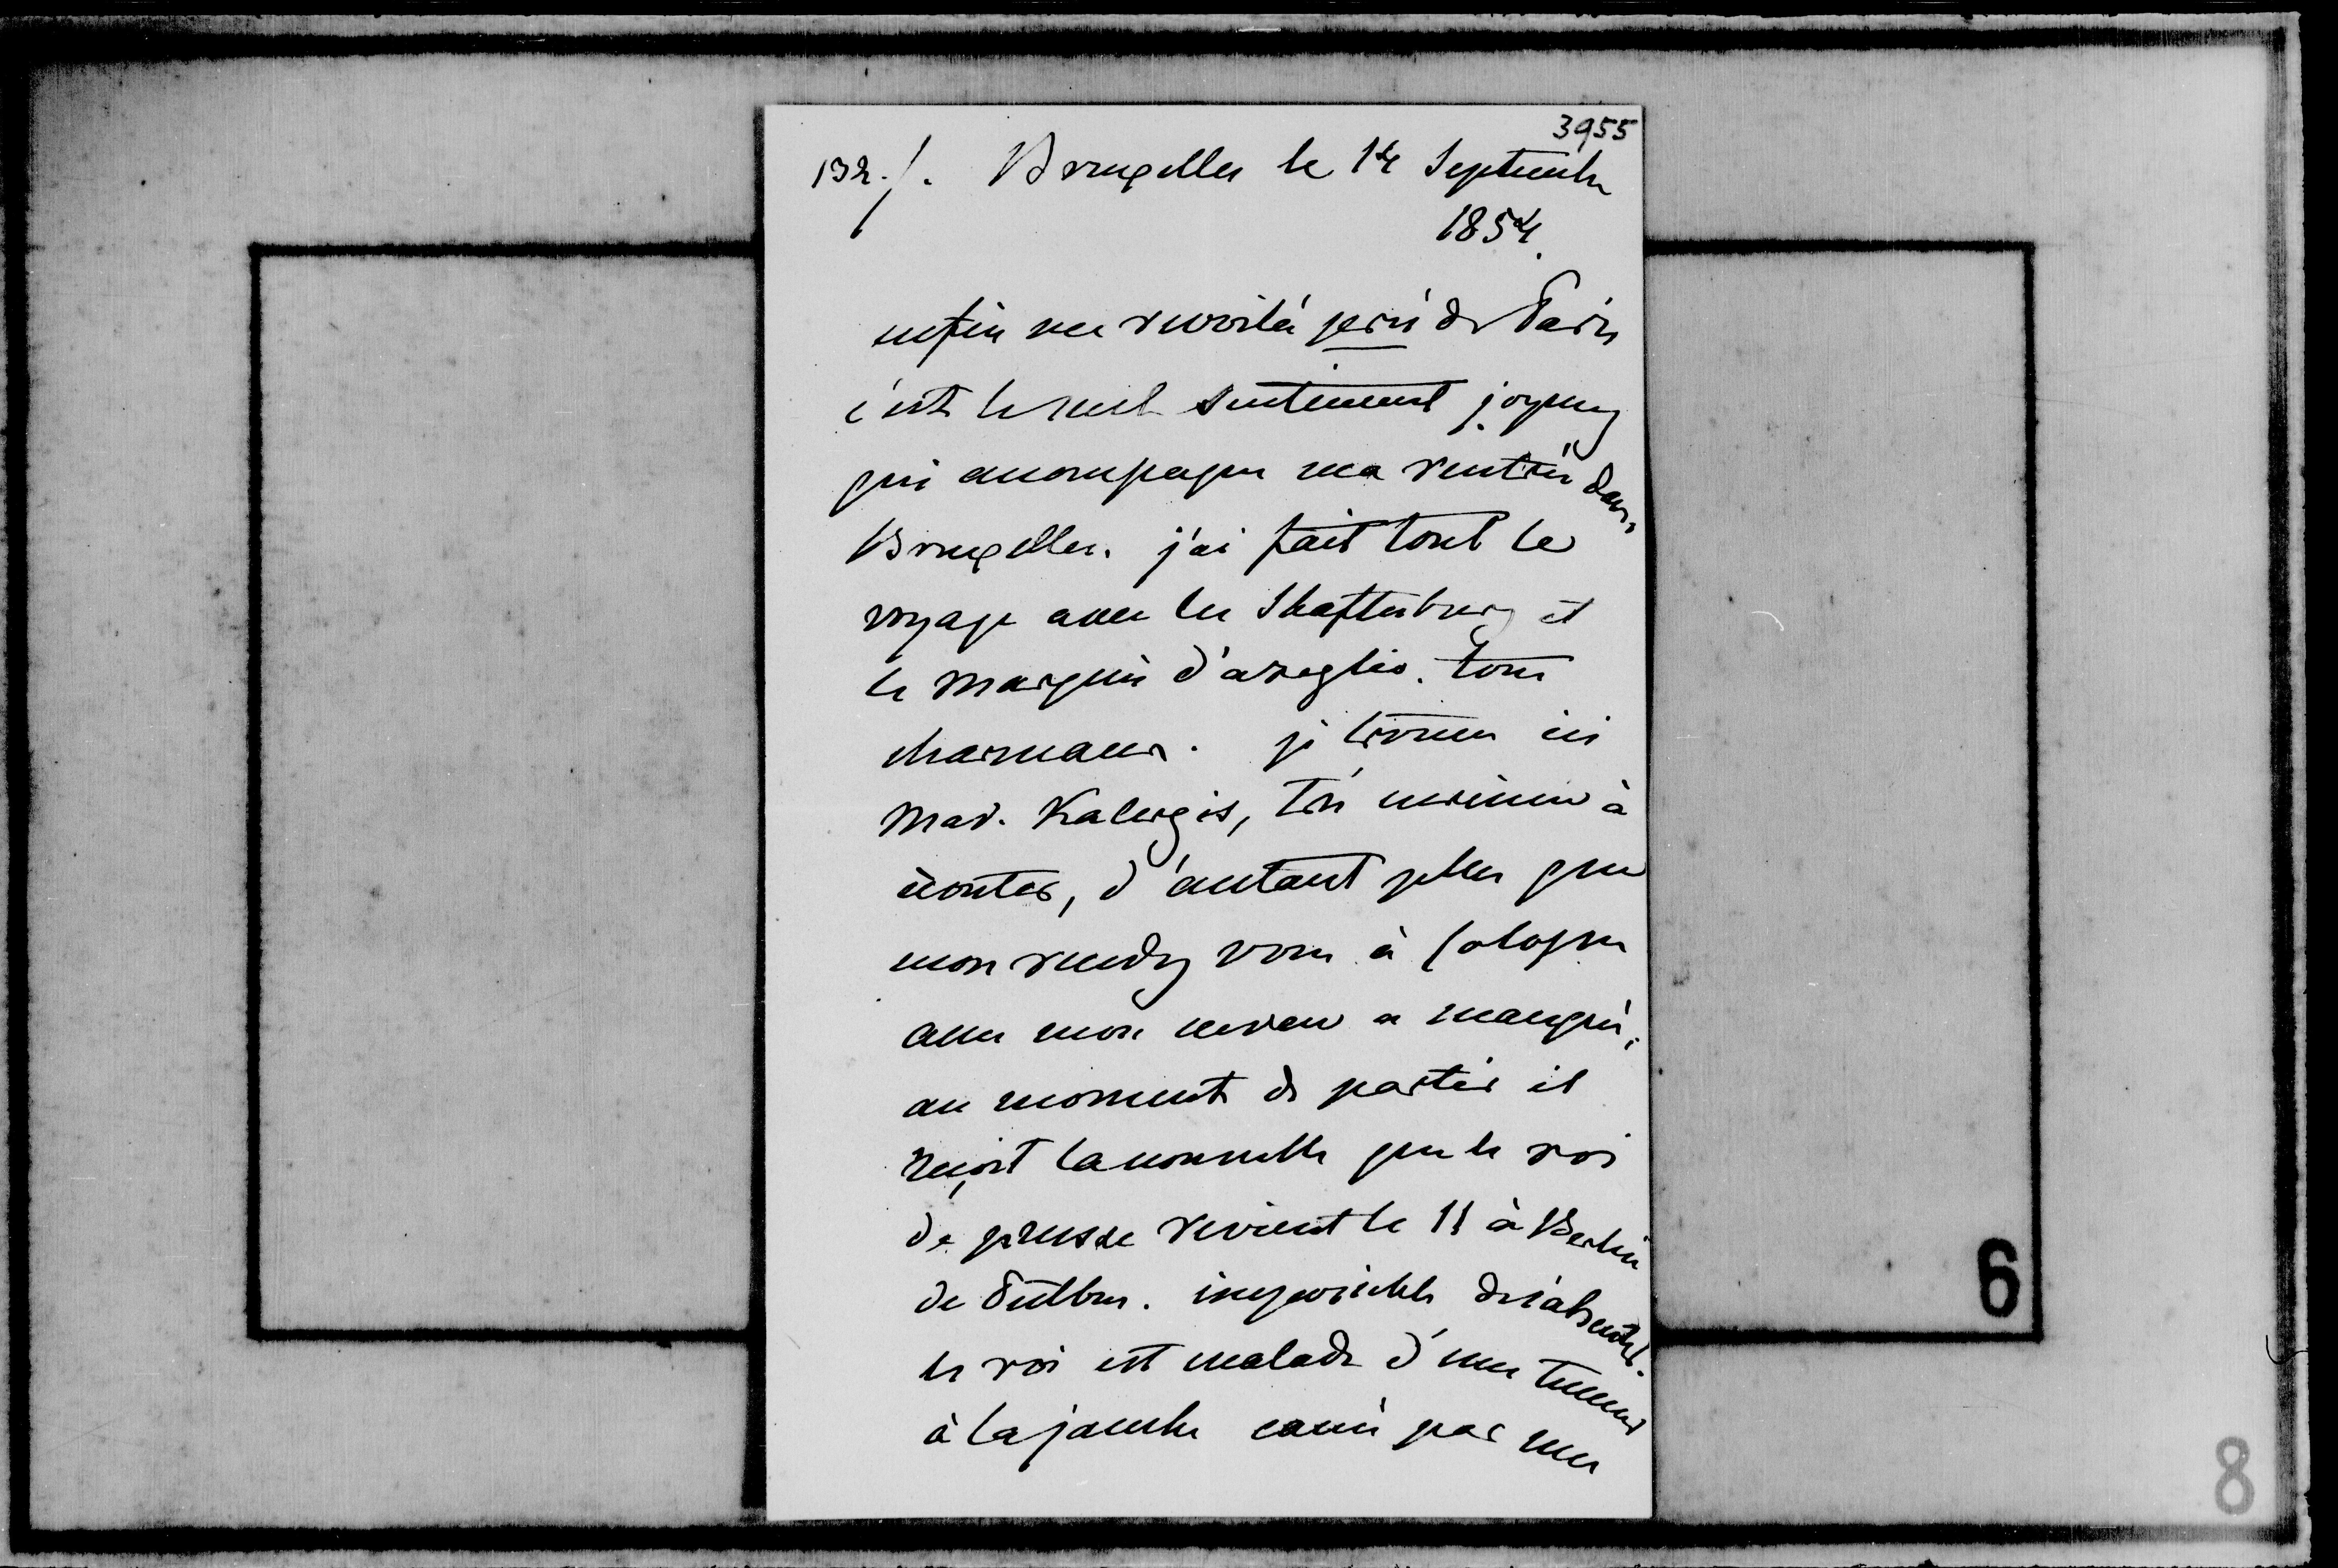 3955
132./. Bruxelles le 14 Septembre
1854.
enfin me revoilà près de Paris
c'est le seul sentiment joyeux
qui accompagne ma rentrée dans
Bruxelles. j'ai fait tout le
voyage avec les Shaftesbury et
le marquis d'azeglio. tous
charmans. je trouve ici
Mad. Kalergis, très curieuse à
écouter, d'autant plus que
mon rendez vous à Cologne
avec mon neveu a manqué,
au moment de partir il
reçoit la nouvelle que le roi
de prusse revient le 11 à Berlin
de Putbus. impossible de s'absenter.
le roi est malade d'une tumeur
à la jambe causée par une
6
8